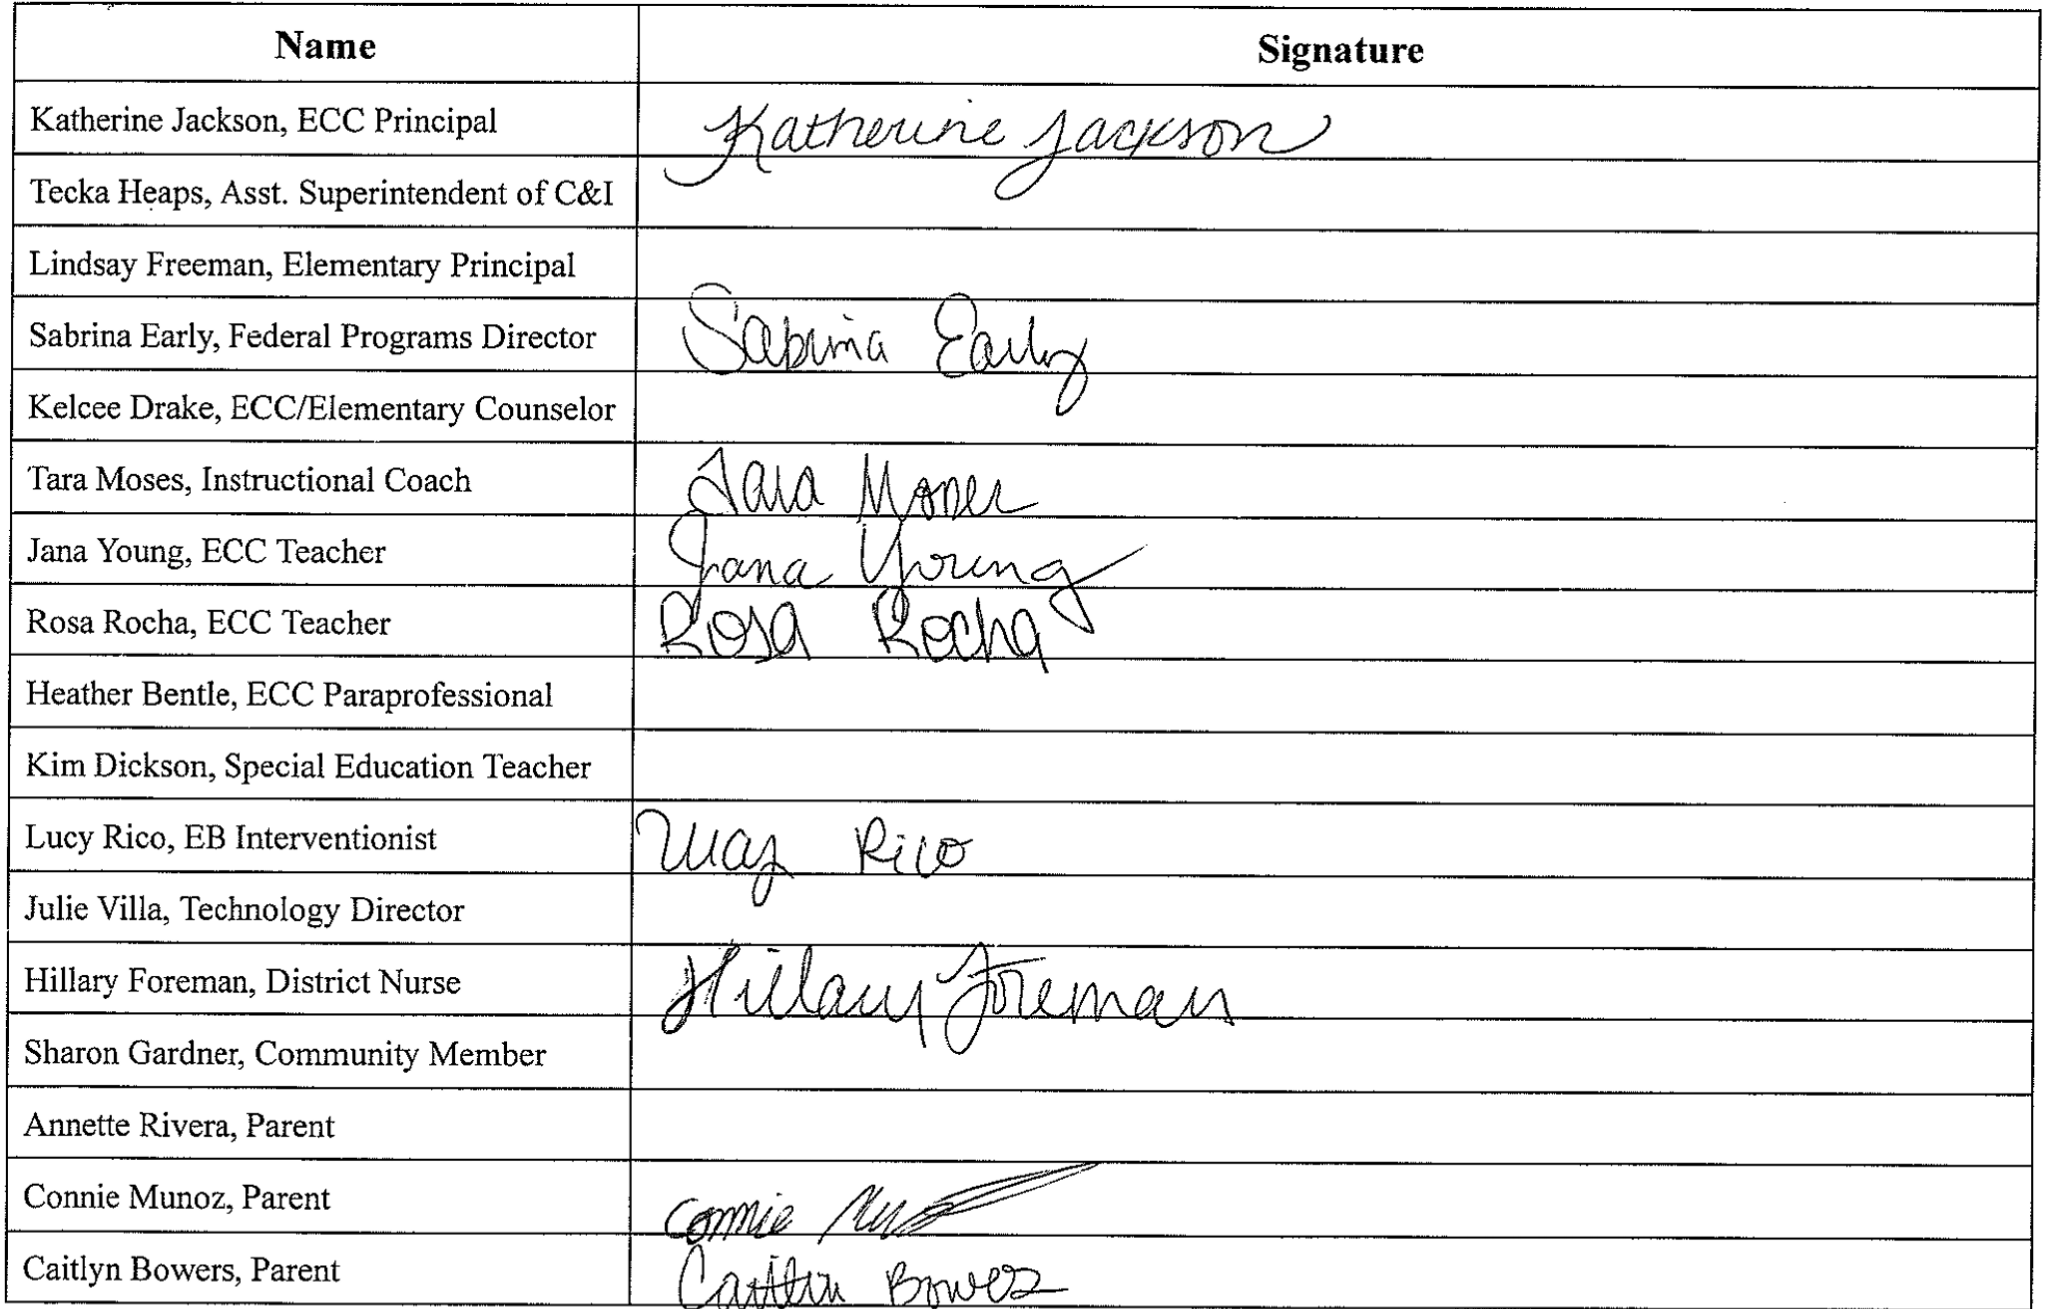 Name Signature
Katherine Jackson, ECC Principal Katherine Jackson
Tecka Heaps, Asst. Superintendent of C&I
Lindsay Freeman, Elementary Principal
Sabrina Early, Federal Programs Director Sabrina Early
Kelcee Drake, ECC/Elementary Counselor
Tara Moses, Instructional Coach Tara Moses
Jana Young, ECC Teacher Jana Young
Rosa Rocha, ECC Teacher Rosa Rocha
Heather Bentle, ECC Paraprofessional
Kim Dickson, Special Education Teacher
Lucy Rico, EB Interventionist Rico
Julie Villa, Technology Director
Hillary Foreman, District Nurse Hillary Foreman
Sharon Gardner, Community Member
Annette Rivera, Parent
Connie Munoz, Parent Connie
Caitlyn Bowers, Parent Bowers